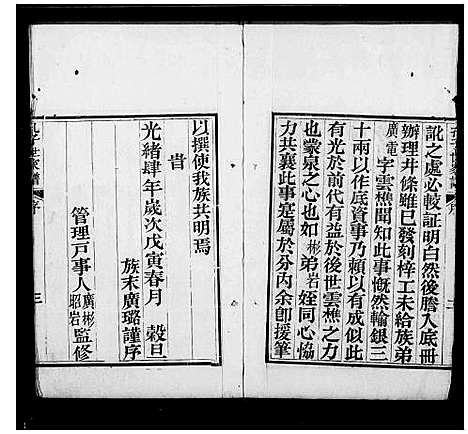 訛之處必較証明白然後謄入底冊
辦理井條雖巳發刻梓工未給族弟
廣電字雲樵聞知此事慨然輸銀三
十兩以作底資事乃頼以有成似此
有光於前代有益於後世雲樵之力
也蒙泉之心也如彬弟岩姪同心恊
力共襄此事是屬於分內余卽援筆
以撰使我族共明焉
旹
光緒肆年歲次戊寅春月 穀旦
族末廣璐謹序
管理戸事人廣彬昭岩監修
世家譜 序 三